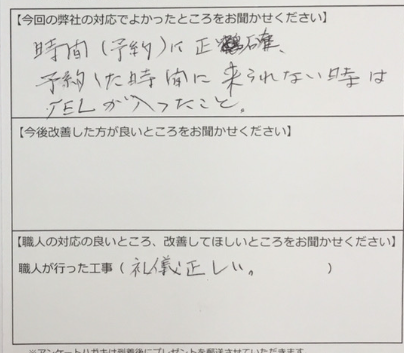 【今回の弊社の対応でよかったところをお聞かせください】
時間(予約)に正確、
予約した時間に来られない時は
TELが入ったこと。
【今後改善した方が良いところをお聞かせください】
【職人の対応の良いところ、改善してほしいところをお聞かせください】
職人が行った工事(礼儀正しい。)
※アンケートハガキは到着後にプレゼントを郵送させていただきます